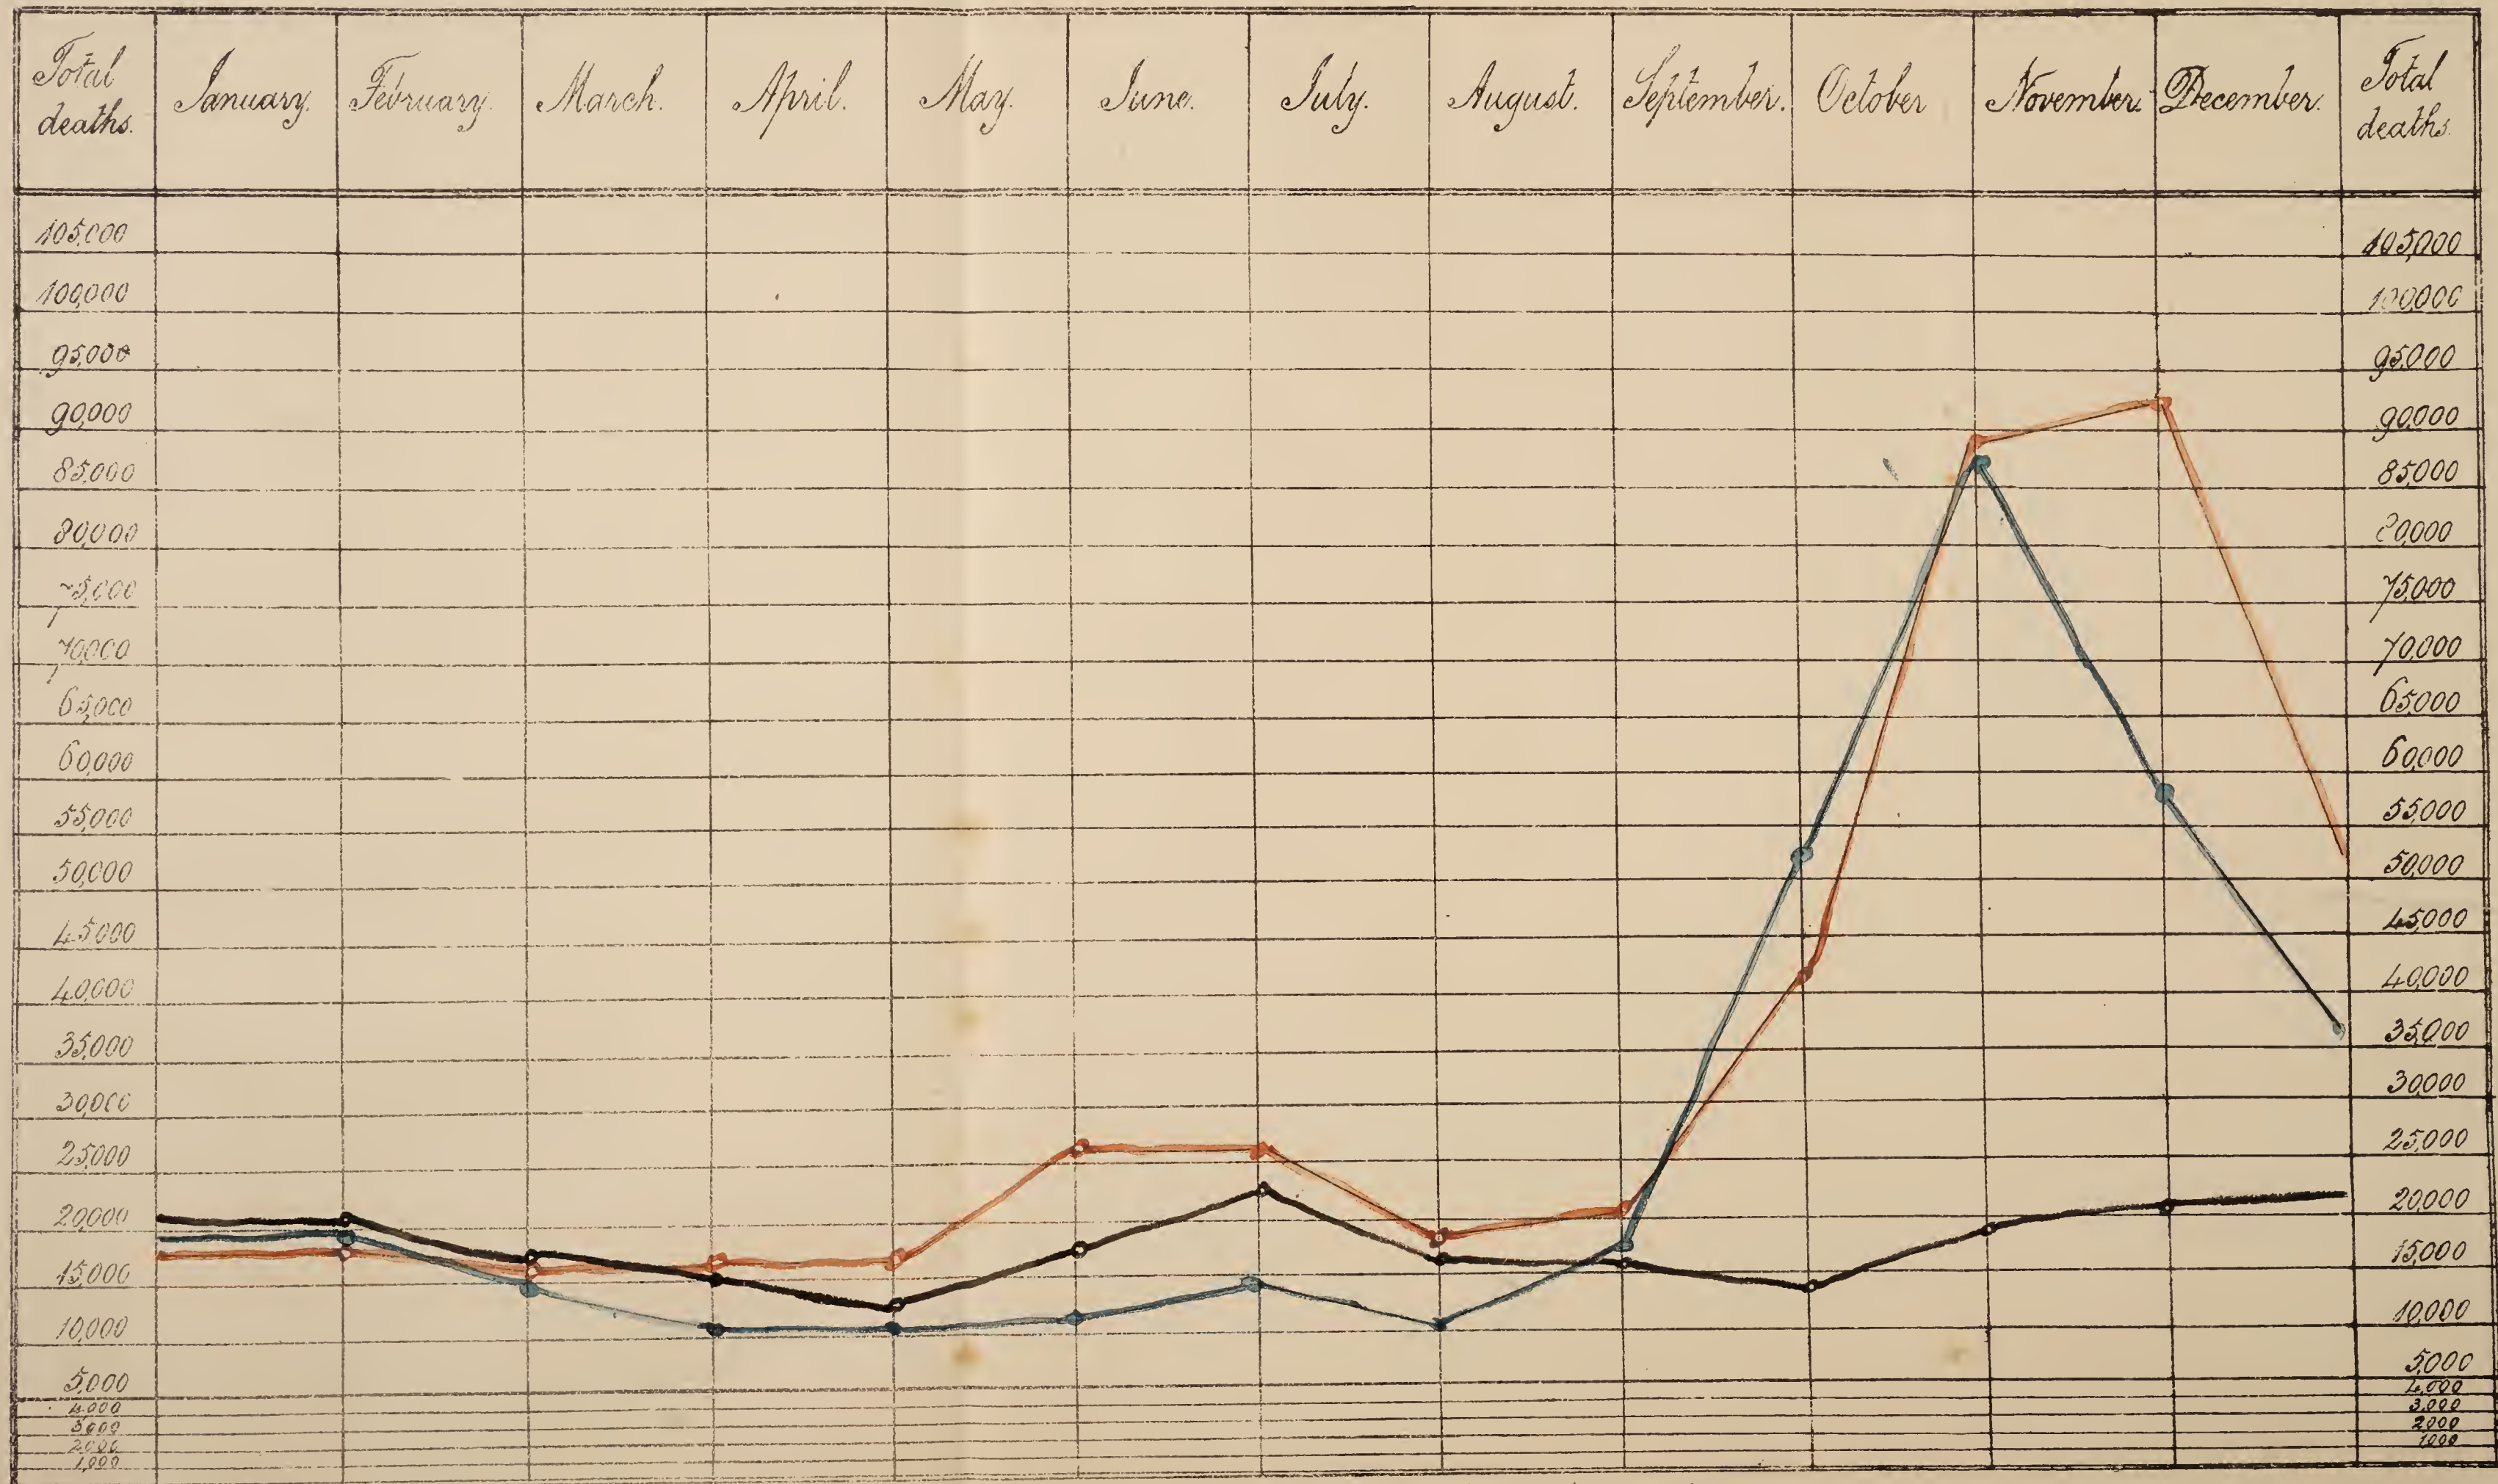 Total deaths.
January.
February.
March.
April.
May.
June.
July.
August.
September.
October
November.
December.
Total deaths.
105,000
100,000
95,000
90,000
85,000
80,000
75,000
70,000
65,000
60,000
55,000
50,000
45,000
40,000
35,000
30,000
25,000
20,000
15,000
10,000
5,000
4,000
3,000
2,000
1,000
105,000
100,000
95,000
90,000
85,000
80,000
75,000
70,000
65,000
60,000
55,000
50,000
45,000
40,000
35,000
30,000
25,000
20,000
15,000
10,000
5,000
4,000
3,000
2,000
1,000